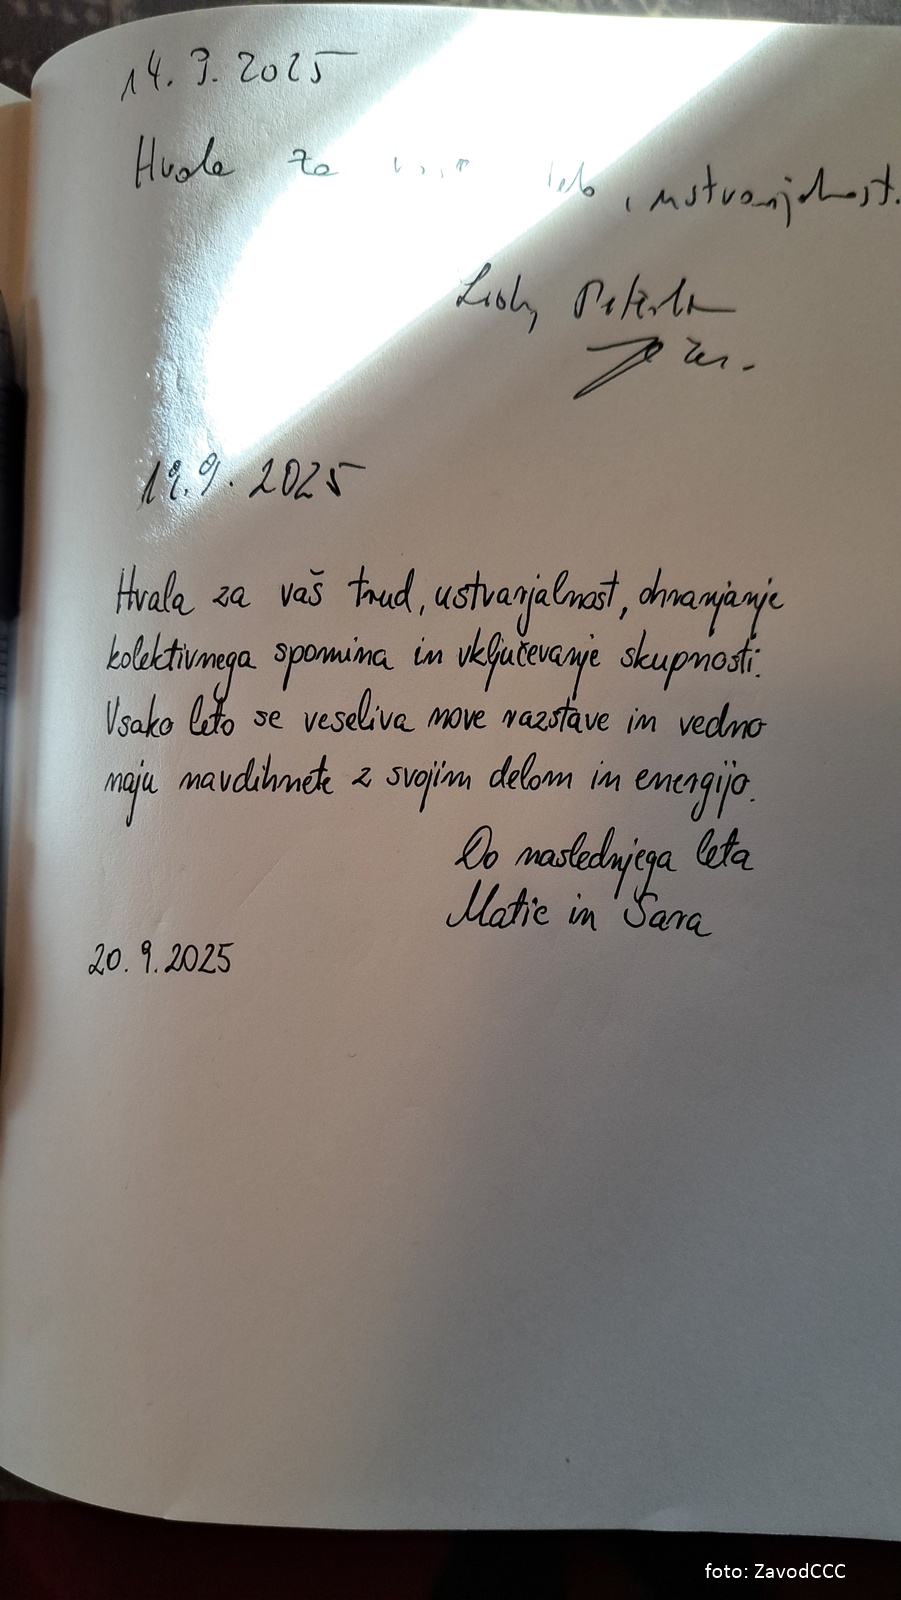 14. 9. 2025
Hvala za , ustvarjalnost.
19. 9. 2025
Hvala za vaš trud, ustvarjalnost, ohranjanje
kolektivnega spomina in vključevanje skupnosti.
Vsako leto se veseliva nove razstave in vedno
naju navdihnete z svojim delom in energijo.
Do naslednjega leta
Matic in Sara
20. 9. 2025
foto: ZavodCCC